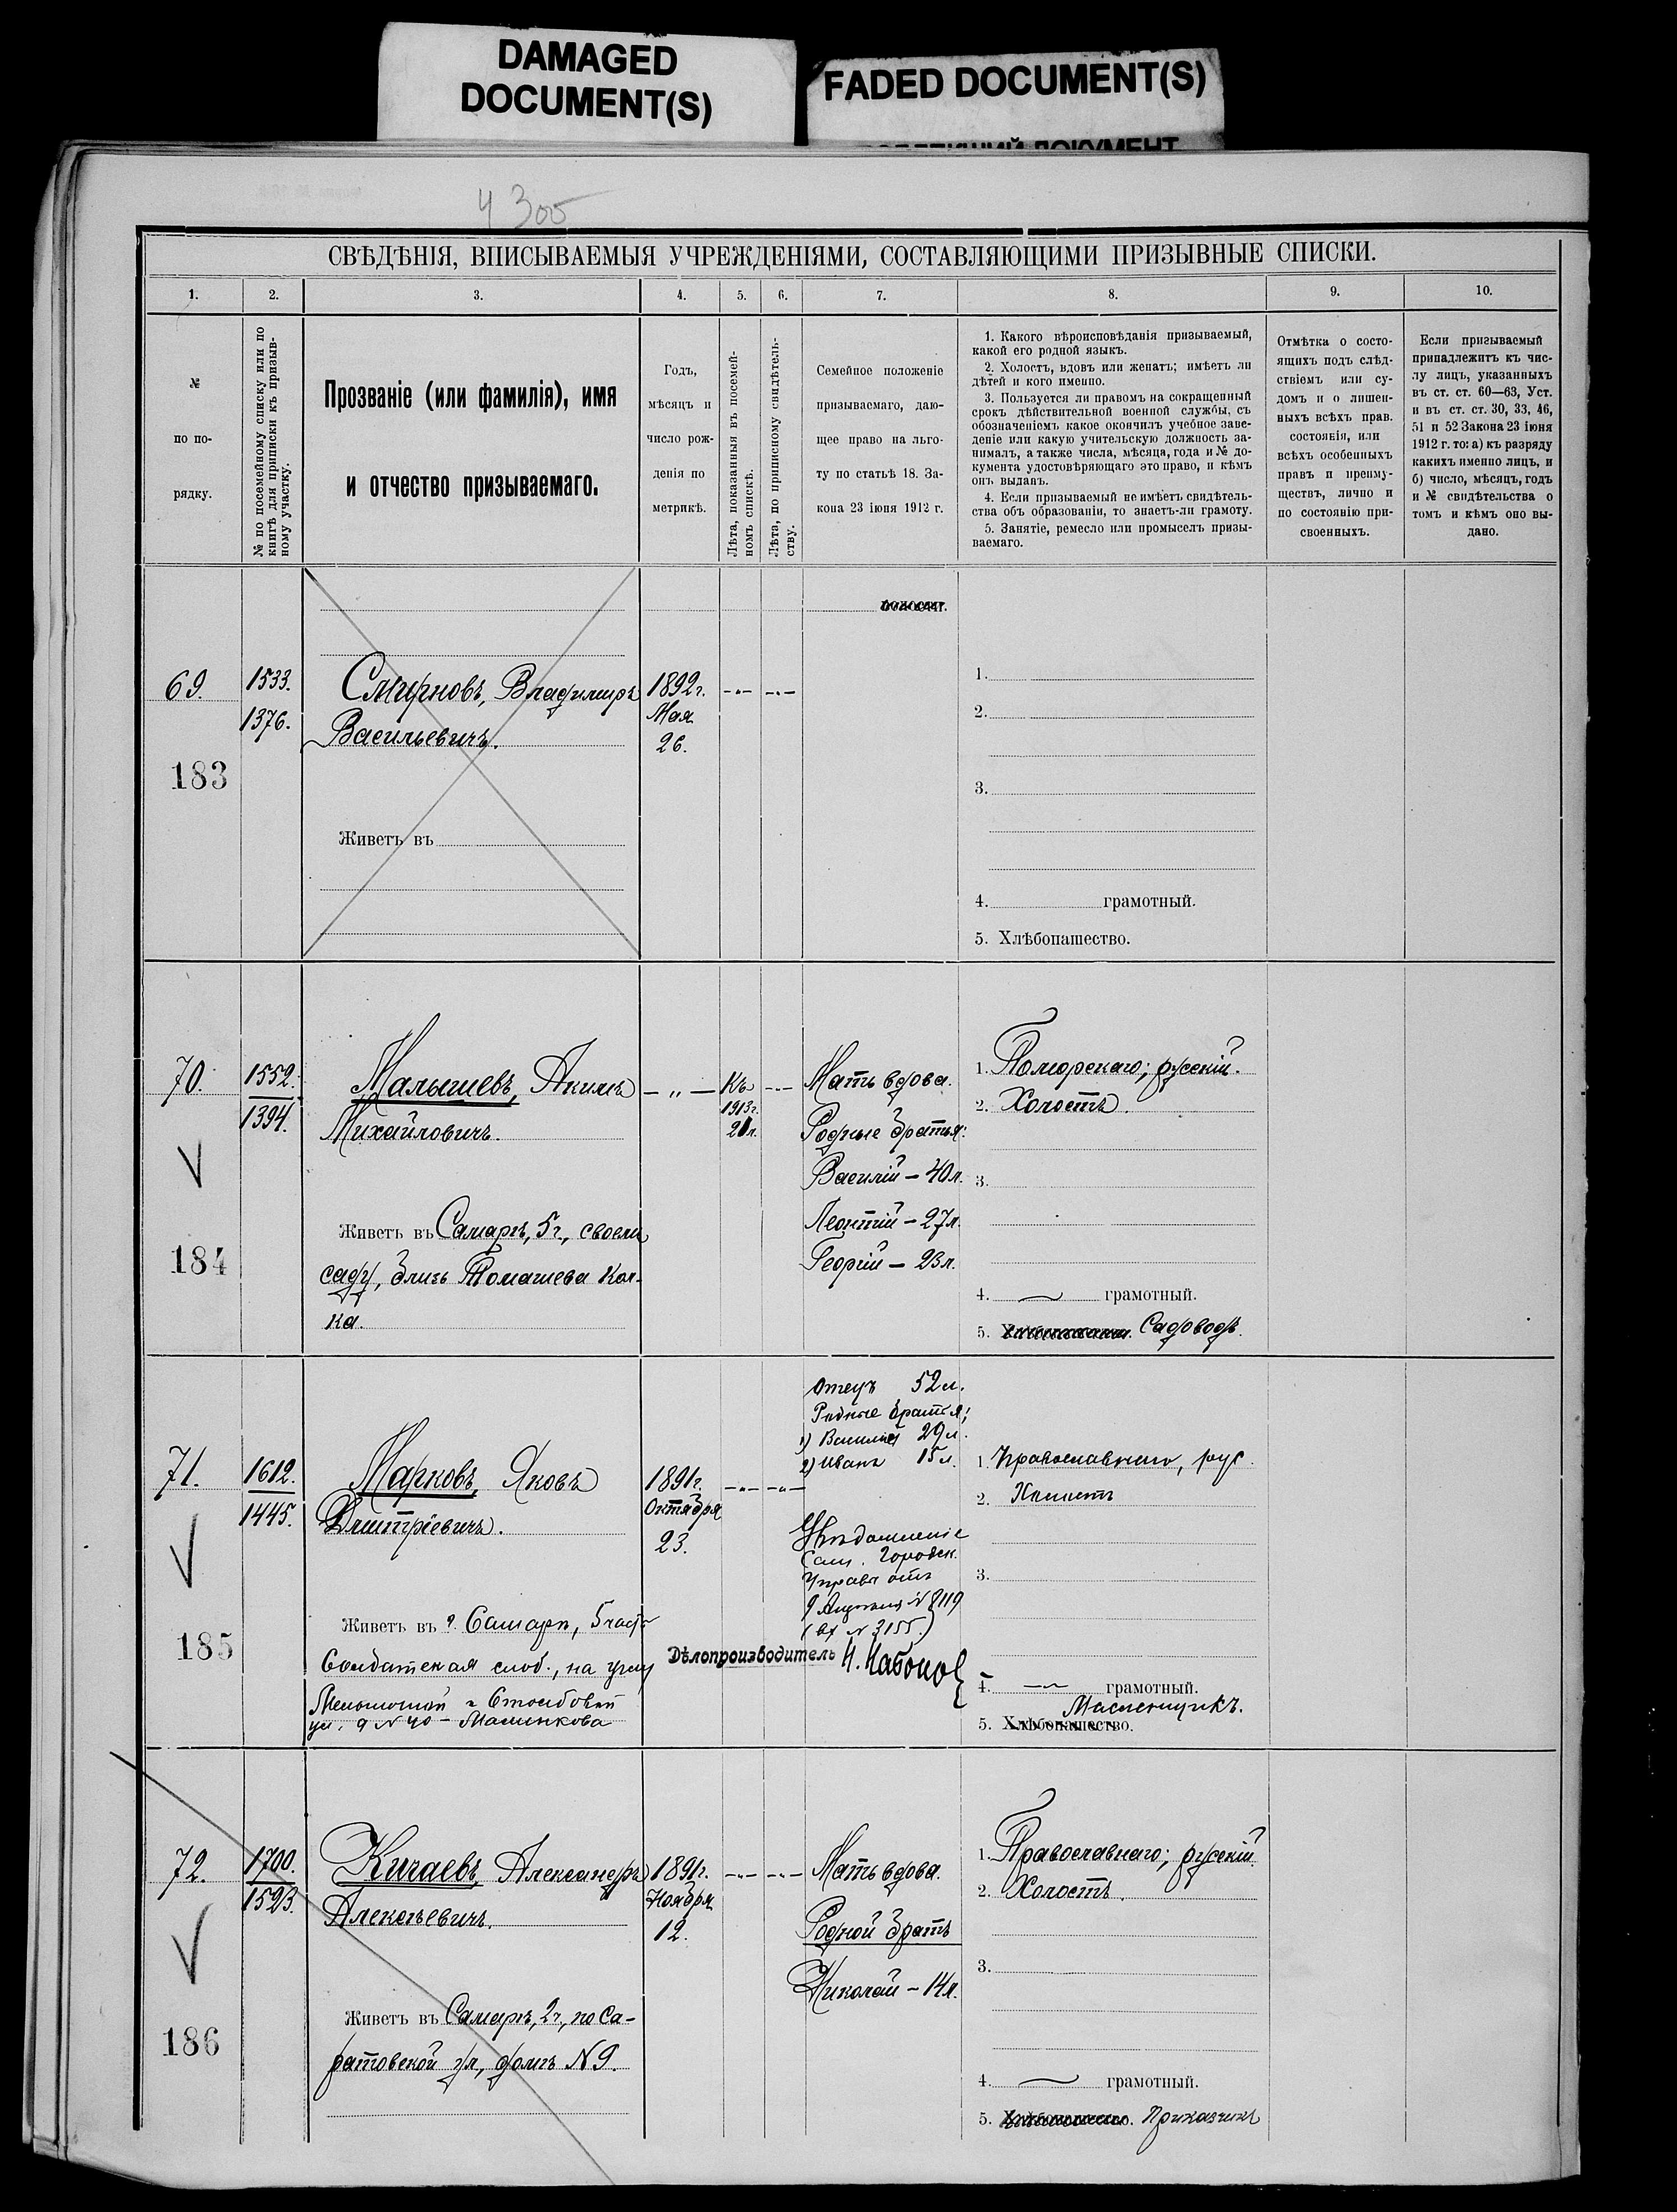 DAMAGED
DOCUMENT(S)
FADED DOCUMENT(S)
4 300
СВѢДѢНІЯ, ВПИСЫВАЕМЫЯ УЧРЕЖДЕНІЯМИ, СОСТАВЛЯЮЩИМИ ПРИЗЫВНЫЕ СПИСКИ.
1. 2. 3. 4. 5. 6. 7. 8. 9. 10.
№
по по-
рядку.
№ по посемейному списку или по
книгѣ для приписки къ призыв-
ному участку.
Прозваніе (или фамилія), имя
и отчество призываемаго.
Годъ,
мѣсяцъ и
число рож-
денія по
метрикѣ.
Лѣта, показанныя въ посемей-
номъ спискѣ.
Лѣта, по приписному свидѣтель-
ству.
Семейное положеніе
призываемаго, даю-
щее право на льго-
ту по статьѣ 18. За-
кона 23 іюня 1912 г.
1. Какого вѣроисповѣданія призываемый,
какой его родной языкъ.
2. Холостъ, вдовъ или женатъ; имѣетъ ли
дѣтей и кого именно.
3. Пользуется ли правомъ на сокращенный
срокъ дѣйствительной военной службы, съ
обозначеніемъ какое окончилъ учебное заве-
деніе или какую учительскую должность за-
нималъ, а также числа, мѣсяца, года и № до-
кумента удостовѣряющаго это право, и кѣмъ
онъ выданъ.
4. Если призываемый не имѣетъ свидѣтель-
ства объ образованіи, то знаетъ-ли грамоту.
5. Занятіе, ремесло или промыселъ призы-
ваемаго.
Отмѣтка о состо-
ящихъ подъ слѣд-
ствіемъ или су-
домъ и о лишен-
ныхъ всѣхъ прав.
состоянія, или
всѣхъ особенныхъ
правъ и преиму-
ществъ, лично и
по состоянію при-
своенныхъ.
Если призываемый
принадлежитъ къ чис-
лу лицъ, указанныхъ
въ ст. ст. 60—63, Уст.
и въ ст. ст. 30, 33, 46,
51 и 52 Закона 23 іюня
1912 г. то: а) къ разряду
какихъ именно лицъ, и
б) число, мѣсяцъ, годъ
и № свидѣтельства о
томъ и кѣмъ оно вы-
дано.
69.
1533.
1376.
183
Смирновъ, Владимиръ
Васильевичъ.
Живетъ въ
1892г.
Мая
26.
1.
2.
3.
4. грамотный.
5. Хлѣбопашество.
70.
1552.
1394.
184
Малышевъ, Акимъ
Михайловичъ.
Живетъ въ Самарѣ, 5ч., своемъ
саду, близь Томашева Кол-
ка.
— „ —
Къ
1913г.
21л.
Мать вдова.
Родные братья:
Василій – 40л.
Леонтій – 27л.
Георгій – 23л.
1. Поморскаго; русскій.
2. Холостъ.
3.
4. грамотный.
5. Садоводъ.
71.
1612.
1445.
185
Марковъ, Яковъ
Дмитріевичъ.
Живетъ въ г. Самарѣ, 5 часть
Солдатская слоб., на углу
Мельничной и Столбовой
ул. д № 40 – Масленкова
1891г.
Октября
23.
Отецъ 52 л.
Родные братья;
1) Василій 29 л.
2) Иванъ 15 л.
Увѣдомленіе
Сам. Городск.
Управы отъ
№ 8119
(вх № 3155.)
Дѣлопроизводитель
1. Православнаго, рус.
2. Холостъ
3.
4. грамотный.
Масленщикъ.
5. Хлѣбопашество.
72.
1700.
1523.
186
Кичаевъ, Александръ
Алексѣевичъ.
Живетъ въ Самарѣ, 2ч., по Са-
ратовской ул, домъ № 9.
1891г.
Ноября
12.
Мать вдова.
Родной братъ
Николай – 14л.
1. Православнаго; русскій.
2. Холостъ.
3.
4. грамотный.
5. Приказчикъ